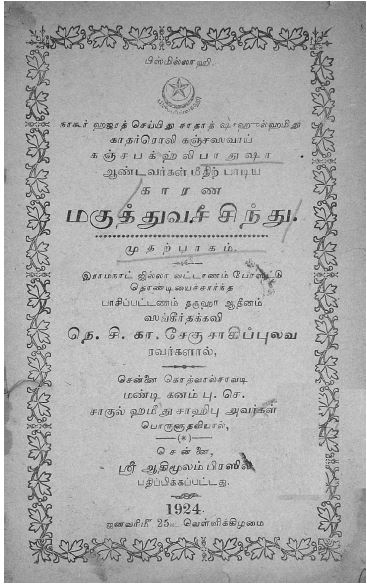 பிஸ்மில்லாஹி.
நாகூர் ஹஜரத் செய்யிது சாதாத் ஷாஹுல்ஹமீது
காதர்ரொலி கஞ்சஸவாய்
கஞ்சபக்ஷிபாதுஷா
ஆண்டவர்கள் மீதிற் பாடிய
காரண
மகுத்துவச் சிந்து.
முதற்பாகம்.
இராமநாட் ஜில்லா லட்டாணம் போஸ்ட்டு
தொண்டியைச்சார்ந்த
பாசிப்பட்டணம் தருஹா ஆதீனம்
ஸங்கீர்தக்கவி
நெ. சி. கா. சேகு சாகிப்புலவ
ரவர்களால்,
சென்னை கொத்வால்சாவடி
மண்டி கனம் பு. செ.
சாகுல் ஹமீது சாஹிபு அவர்கள்
பொருளுதவியால்,
சென்னை,
ஸ்ரீ ஆதிமூலம் பிரஸில்
பதிப்பிக்கப்பட்டது.
1924.
ஜனவரிமீ 25௳ வெள்ளிக்கிழமை